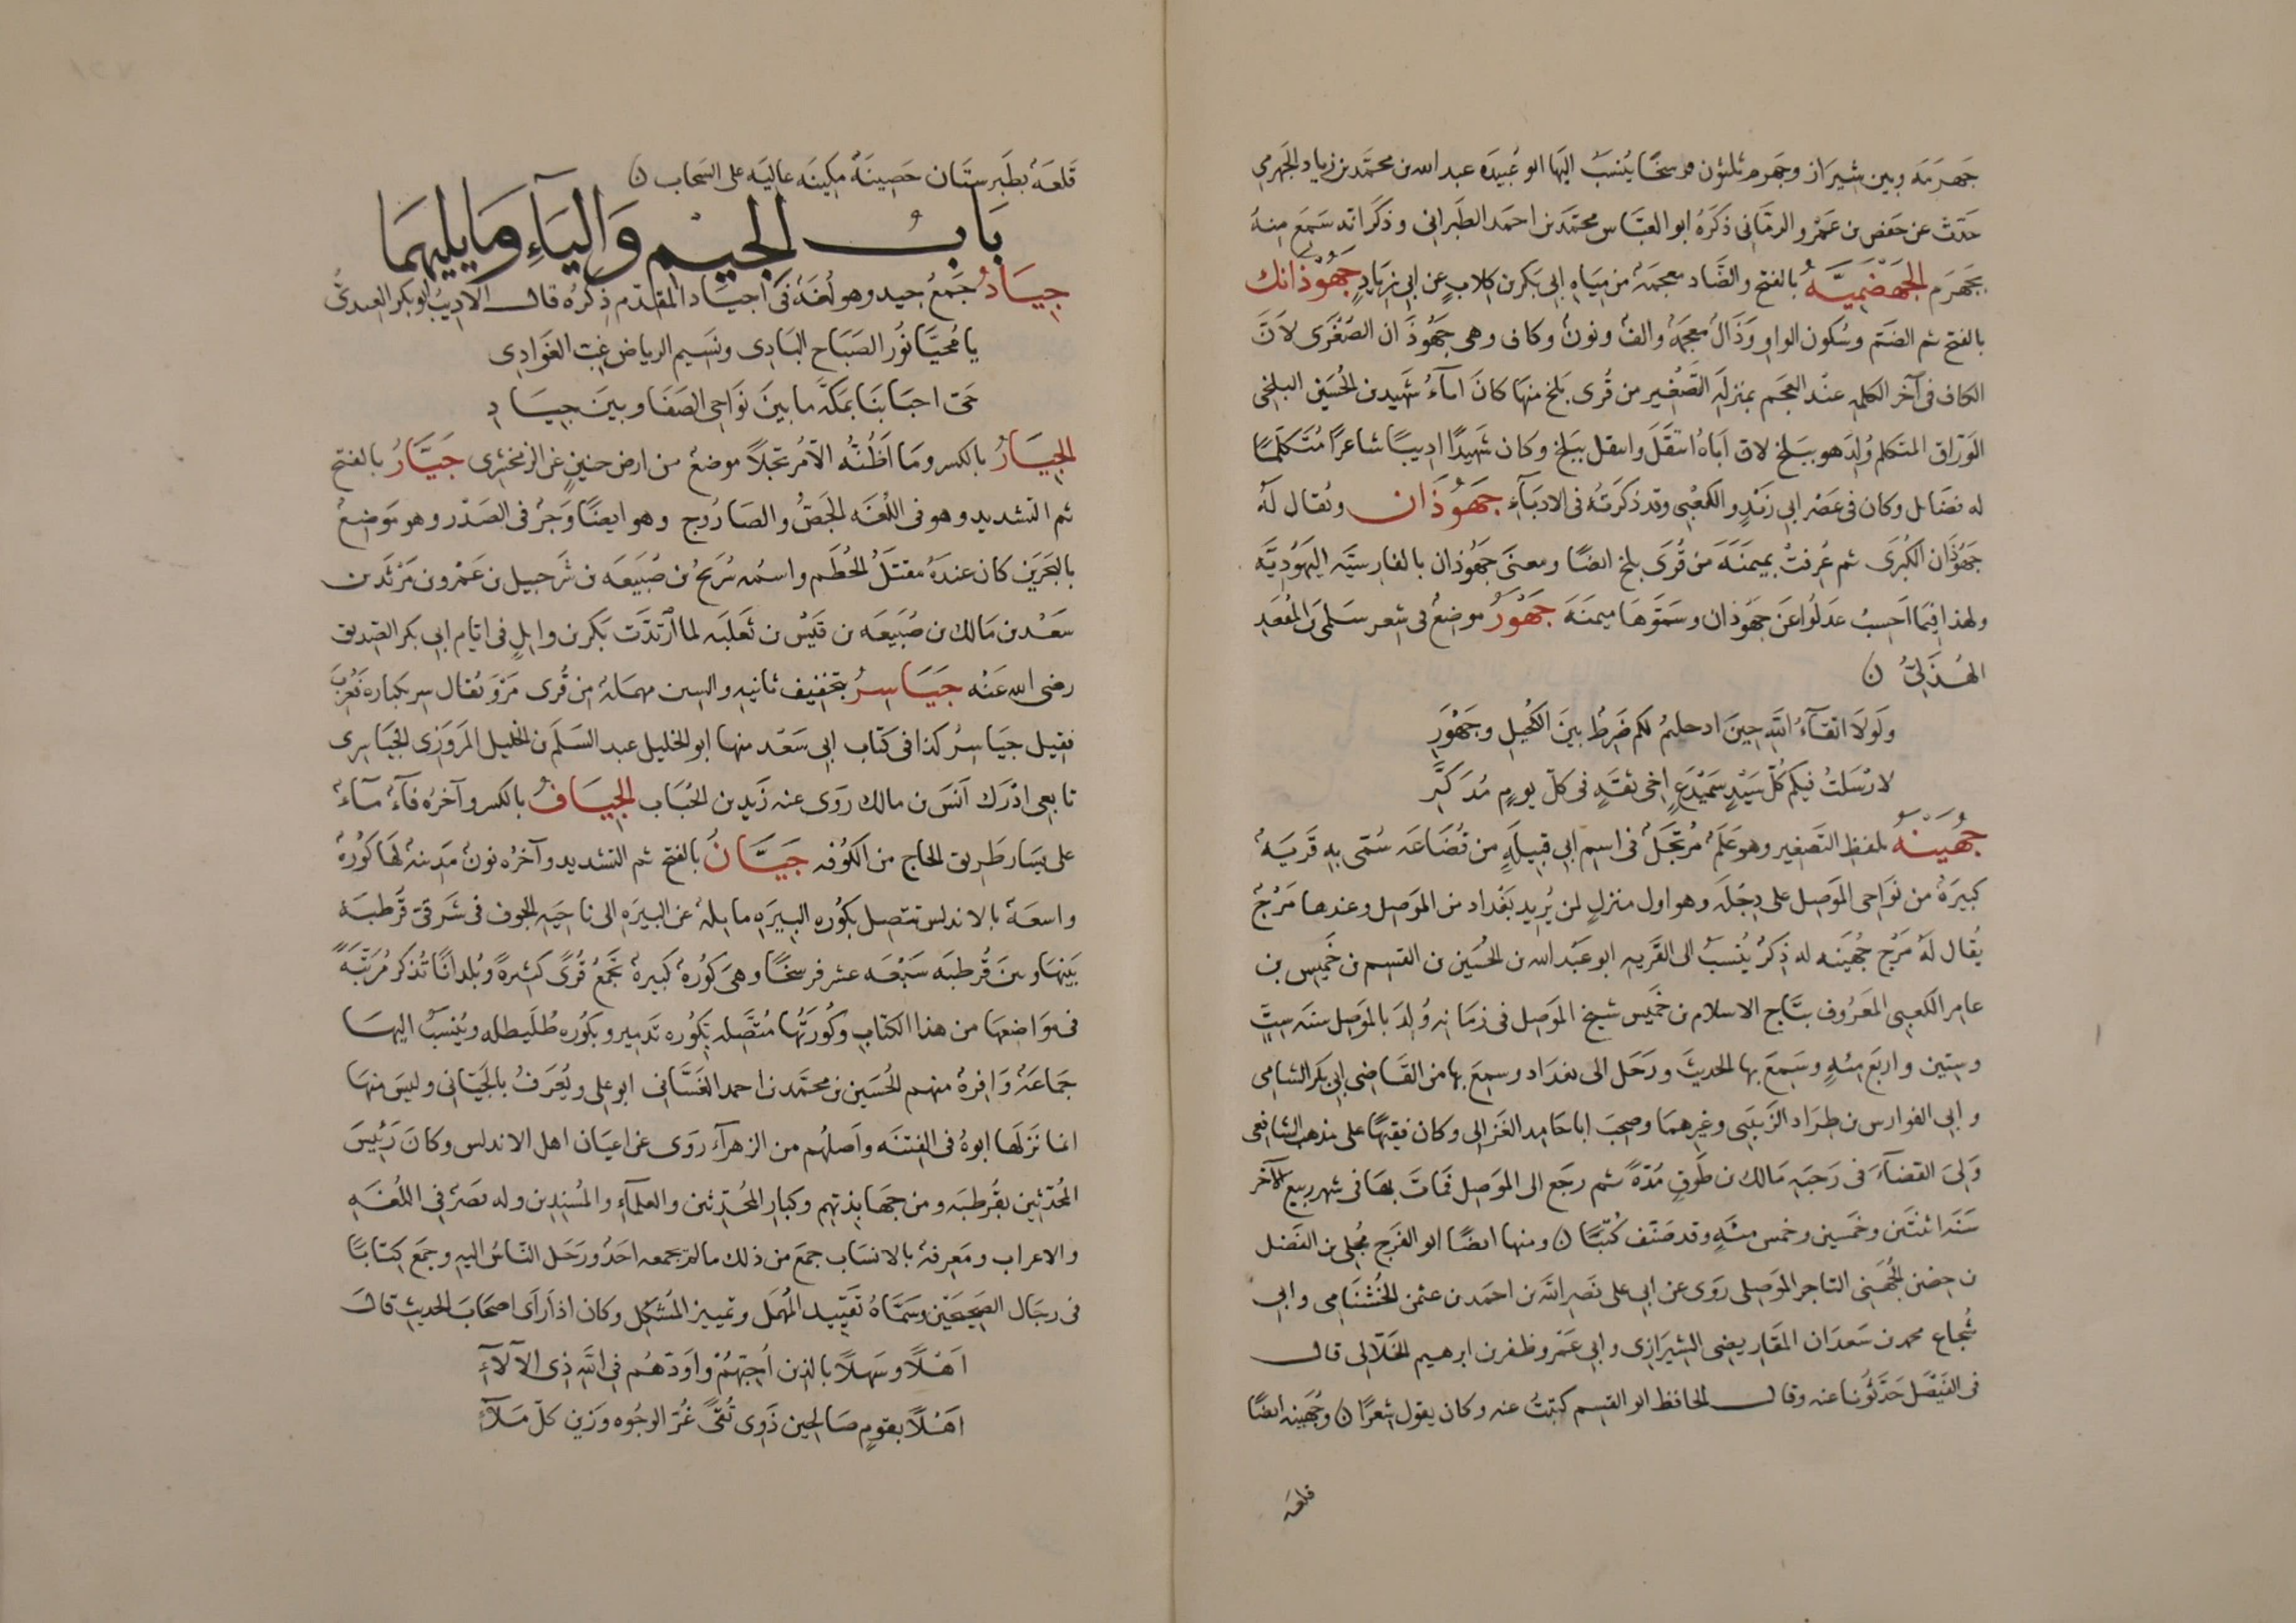 جَهرمَه وبين شيراز وجهرم ثلثون فرسخًا يُنسَبُ اليها ابو عُبيدَه عبد الله بن محمّد بن زياد الجَهرمي
حَدّث عن حَفص بن عَمْرو الرمّاني ذكَرهُ ابو العبّاس محمّد بن احمَد الطَبراني وذكَر انه سَمعَ منهُ
بجَهرَم الجَهضَميَّه بالفتح والضّاد معجمَة من ميَاه ابي بَكر بن كلابٍ عن ابي زيادٍ جَهُوذانك
بالفتح ثم الضَم وسُكون الواو وَذالٌ معجمَة والفٌ ونونٌ وكاف وهى جَهُوذان الصُغرَى لانّ
الكاف فى آخر الكلمه عنَد العَجم بمنزلَه التَصْغير من قُرى بَلخ منهَا كانَ اماءُ شَهيد بن الحُسَين البلخى
الوَرّاق المتَكلم وُلدَ هو ببَلخ لان اَباهُ انتقَلَ وانتقل ببَلخ وكان شَهيدًا اديبًا شاعرًا مُتكلّمًا
له فضَائل وكان فى عَصْر ابى زَيدٍ والكعْبى وقد ذكَرتهُ فى الادبَاءِ جَهُوذَان ويُقال لَهُ
جَهُوذَان الكُبرَى ثم عُرفتْ بميمَنَه من قُرَى بلخ ايضًا ومعنَى جَهُوذان بالفارسيَّه اليَهُوديَّه
ولهذا فيمَا اَحسِبُ عدَلُوا عَن جَهُوذان وسَمّوَهَا ميمنَه جَهْوَرُ موضعٌ فى شِعر سَلمَى بن المُقعَدِ
الهُذَليّ ن
ولَولَا اتقَاءُ اللهِ حينَ ادخلتمُ لكم ضَرطٌ بينَ الكُحيلِ وجَهْوَرِ
لارْسَلتُ فيكم كُلّ سَيّدٍ سَمَيْدَعٍ اخى ثقَةٍ فى كلّ يومٍ مُذَكّرِ
جُهَينَهُ بلفظِ التَصغير وهو عَلَمٌ مُرتجَلٌ فى اسم ابى قبيلَهٍ من قُضَاعَه سُمّى بهِ قَريَهٌ
كبيرَهٌ من نوَاحى الموَصِل على دِجلَه وهو اول منزلٍ لمن يُريد بَغداد من الموَصِل وعندها مَرْجٌ
يُقال لَهُ مَرْج جُهَينه له ذِكرٌ يُنسَبُ الى القَريه ابو عَبْد الله بن الحُسَين بن القسم بن خَميس بن
عامر الكَعبى المعَرُوف بتَاج الاسلام بن خميس شيخ الموَصِل فى زمَانه وُلدَ بالموَصِل سنَه ستٍّ
وستين واربَع مئه وسَمِعَ بها الحديثَ ورَحَل الى بغدَاد وسمعَ بها من القَاضى ابى بَكر الشامى
وابى الفوارس بن طِرَاد الزَينَبى وغيرهمَا وصحِبَ ابا حَامد الغَزالى وكان فقيهًا على مذهب الشافعى
وَلىَ القضَاءَ فى رَحبَه مَالك بن طَوقٍ مُدّهً ثم رجَع الى الموَصِل فمَات بهَا فى شهر ربيع الآخر
سنَه اثنتَين وخمَسين وخمس مئه وقد صَنف كُتبًا ن ومنها ايضًا ابو الفَرج مُجلى بن الفَضل
بن حِصْن الجُهَنى التاجر الموَصِلى رَوَى عن ابى على نصَر الله بن احمَد بن عثمن الخُشنَامى وابى
شُجاع محمد بن سَعدَان المقَاريضى الشيرَازى وابى عَمْرو ظفر بن ابرهيم الخَلّالى قال
فى الفَيصَل حَدّثونا عنه وقال الحافظ ابو القسم كتبتُ عنه وكان يقول شِعرًا ن وجُهَينه ايضًا
قلعه
قَلعَهٌ بطَبرستَان حَصِينَهٌ مكينَه عاليَه على السَحاب ن
بَابُ الجيم وَاليَاءِ ومَا يليهمَا
جِيَادُ جَمعُ جيد وهو لُغَهٌ فى اَجيَاد المقدّم ذكرُه قال الاديبُ ابو بكر العبدىُّ
يا مُحيَّا نُور الصبَاح البَادِى ونسَيم الرياض غِبّ الغَوَادِى
حَىّ احبَابنَا بمكَّه ما بينَ نوَاحى الصَفَا وبينَ جيَادِ
الجيَارُ بالكسر ومَا اَظُنّه الّا مُرتجَلًا موضعٌ من ارض حنينٍ عن الزمخشرى جَيَّارُ بالفتح
ثم التشديد وهو فى اللُغَه الجَصُّ والصَارُوج وهو ايضًا وَجَرٌ فى الصَدّر وهو مَوضعٌ
بالبَحَرين كان عندَهُ مقتَلُ الحُطَم واسمُه شُرَيحُ بن ضُبَيعَه بن شَرحبيل بن عَمْرو بن مَرْثَد بن
سَعْد بن مَالك بن ضُبَيعَه بن قَيْس بن ثَعلبَه لما ارتَدّت بَكر بن وايلٍ فى ايّام ابى بكر الصّديق
رضى الله عَنْه جَيَاسرُ بتخفيف ثانيه والسين مهمَلة من قُرى مَرْو يُقال سر بكباره فعُرّبَ
فقيل جيَاسرُ كذا فى كتَاب ابى سَعْد منها ابو الخليل عبد السَلَم بن الخليل المَروَزى الجيَاسرى
تابعى ادْرَك اَنسَ بن مالك رَوَى عنه زَيد بن الحُبَاب الجيَافُ بالكسر وآخرُه فاءٌ مَاءٌ
على يسَار طَريق الحاج من الكُوفه جَيَّانُ بالفتح ثم التشديد وآخرُه نونٌ مَدينهٌ لهَا كُورهٌ
واسعَهٌ بالاندلس تتصِل بكُوره البيرَه مايلهٌ عن البيرَه الى ناحيَه الجوف فى شَرقىّ قُرطبَه
بَينهَا وبينَ قُرطبَه سَبْعَه عشر فرسخًا وهىَ كُورهٌ كبيرهٌ تجمَعُ قُرىً كثيرةً وبُلدانًا تُذكر مُرَتّبَةً
فى مَوَاضعهَا من هذا الكتاب وكُورَتهُا مُتّصله بكُوره تَدمير وبكُوره طُلَيطله ويُنسَبُ اليهَا
جمَاعَهٌ وَافرهٌ منهم الحُسَين بن محمّد بن احمد الغَسَّانى ابو على ويُعَرفُ بالجَيّانى وليسَ منهَا
انما نَزلهَا ابوهُ فى الفِتنَه واَصلهُم من الزهرآء رَوَى عن اعيَان اهل الاندلس وكانَ رَئيسَ
المُحَدّثين بقُرطبَه ومن جهَابذتهم وكبار المُحَدّثين والعلمَآءِ والمُسْندِين وله بصَرٌ فى اللُغَهِ
والاعراب ومَعِرفهٌ بالانسَاب جمعَ من ذلك ما لم يجمعه احَدٌ ورَحَل النّاسُ اليه وجمعَ كتابًا
فى رجَال الصَحيحَين وسَمّاهُ تَقْييد المُهمَل وتمييز المُشكل وكان اذا رأى اصحَابَ الحديث قالَ
اَهْلًا وسَهلًا بالذين اُحِبّهمُ واَوَدّهُم فى اللهِ ذِى الآلاءِ
اَهْلًا بقومٍ صَالحين ذَوى تُقىً غُرّ الوجُوه وزَين كلّ مَلاءِ